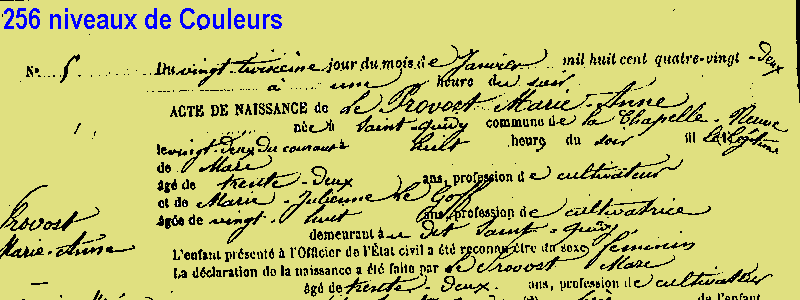 256 niveaux de Couleurs
No 5 Du vingt-troisième jour du mois de Janvier mil huit cent quatre-vingt-deux
à une heure du soir
ACTE DE NAISSANCE de Le Provost Marie-Anne
née à Saint-Quidy commune de la Chapelle-Neuve
le vingt-deux du courant à huit heure du soir fil Légitime
de Marc
âgé de trente-deux ans, profession de cultivateur
et de Marie-Julienne Le Goff
âgée de vingt-huit ans, profession de cultivatrice
demeurant à u dit Saint-Quidy
Provost
Marie-Anne
L'enfant présenté à l'Officier de l'État civil a été reconnu être du sexe féminin
La déclaration de la naissance a été faite par Le Provost Marc
âgé de trente-deux ans, profession de cultivateur
de l'enfant